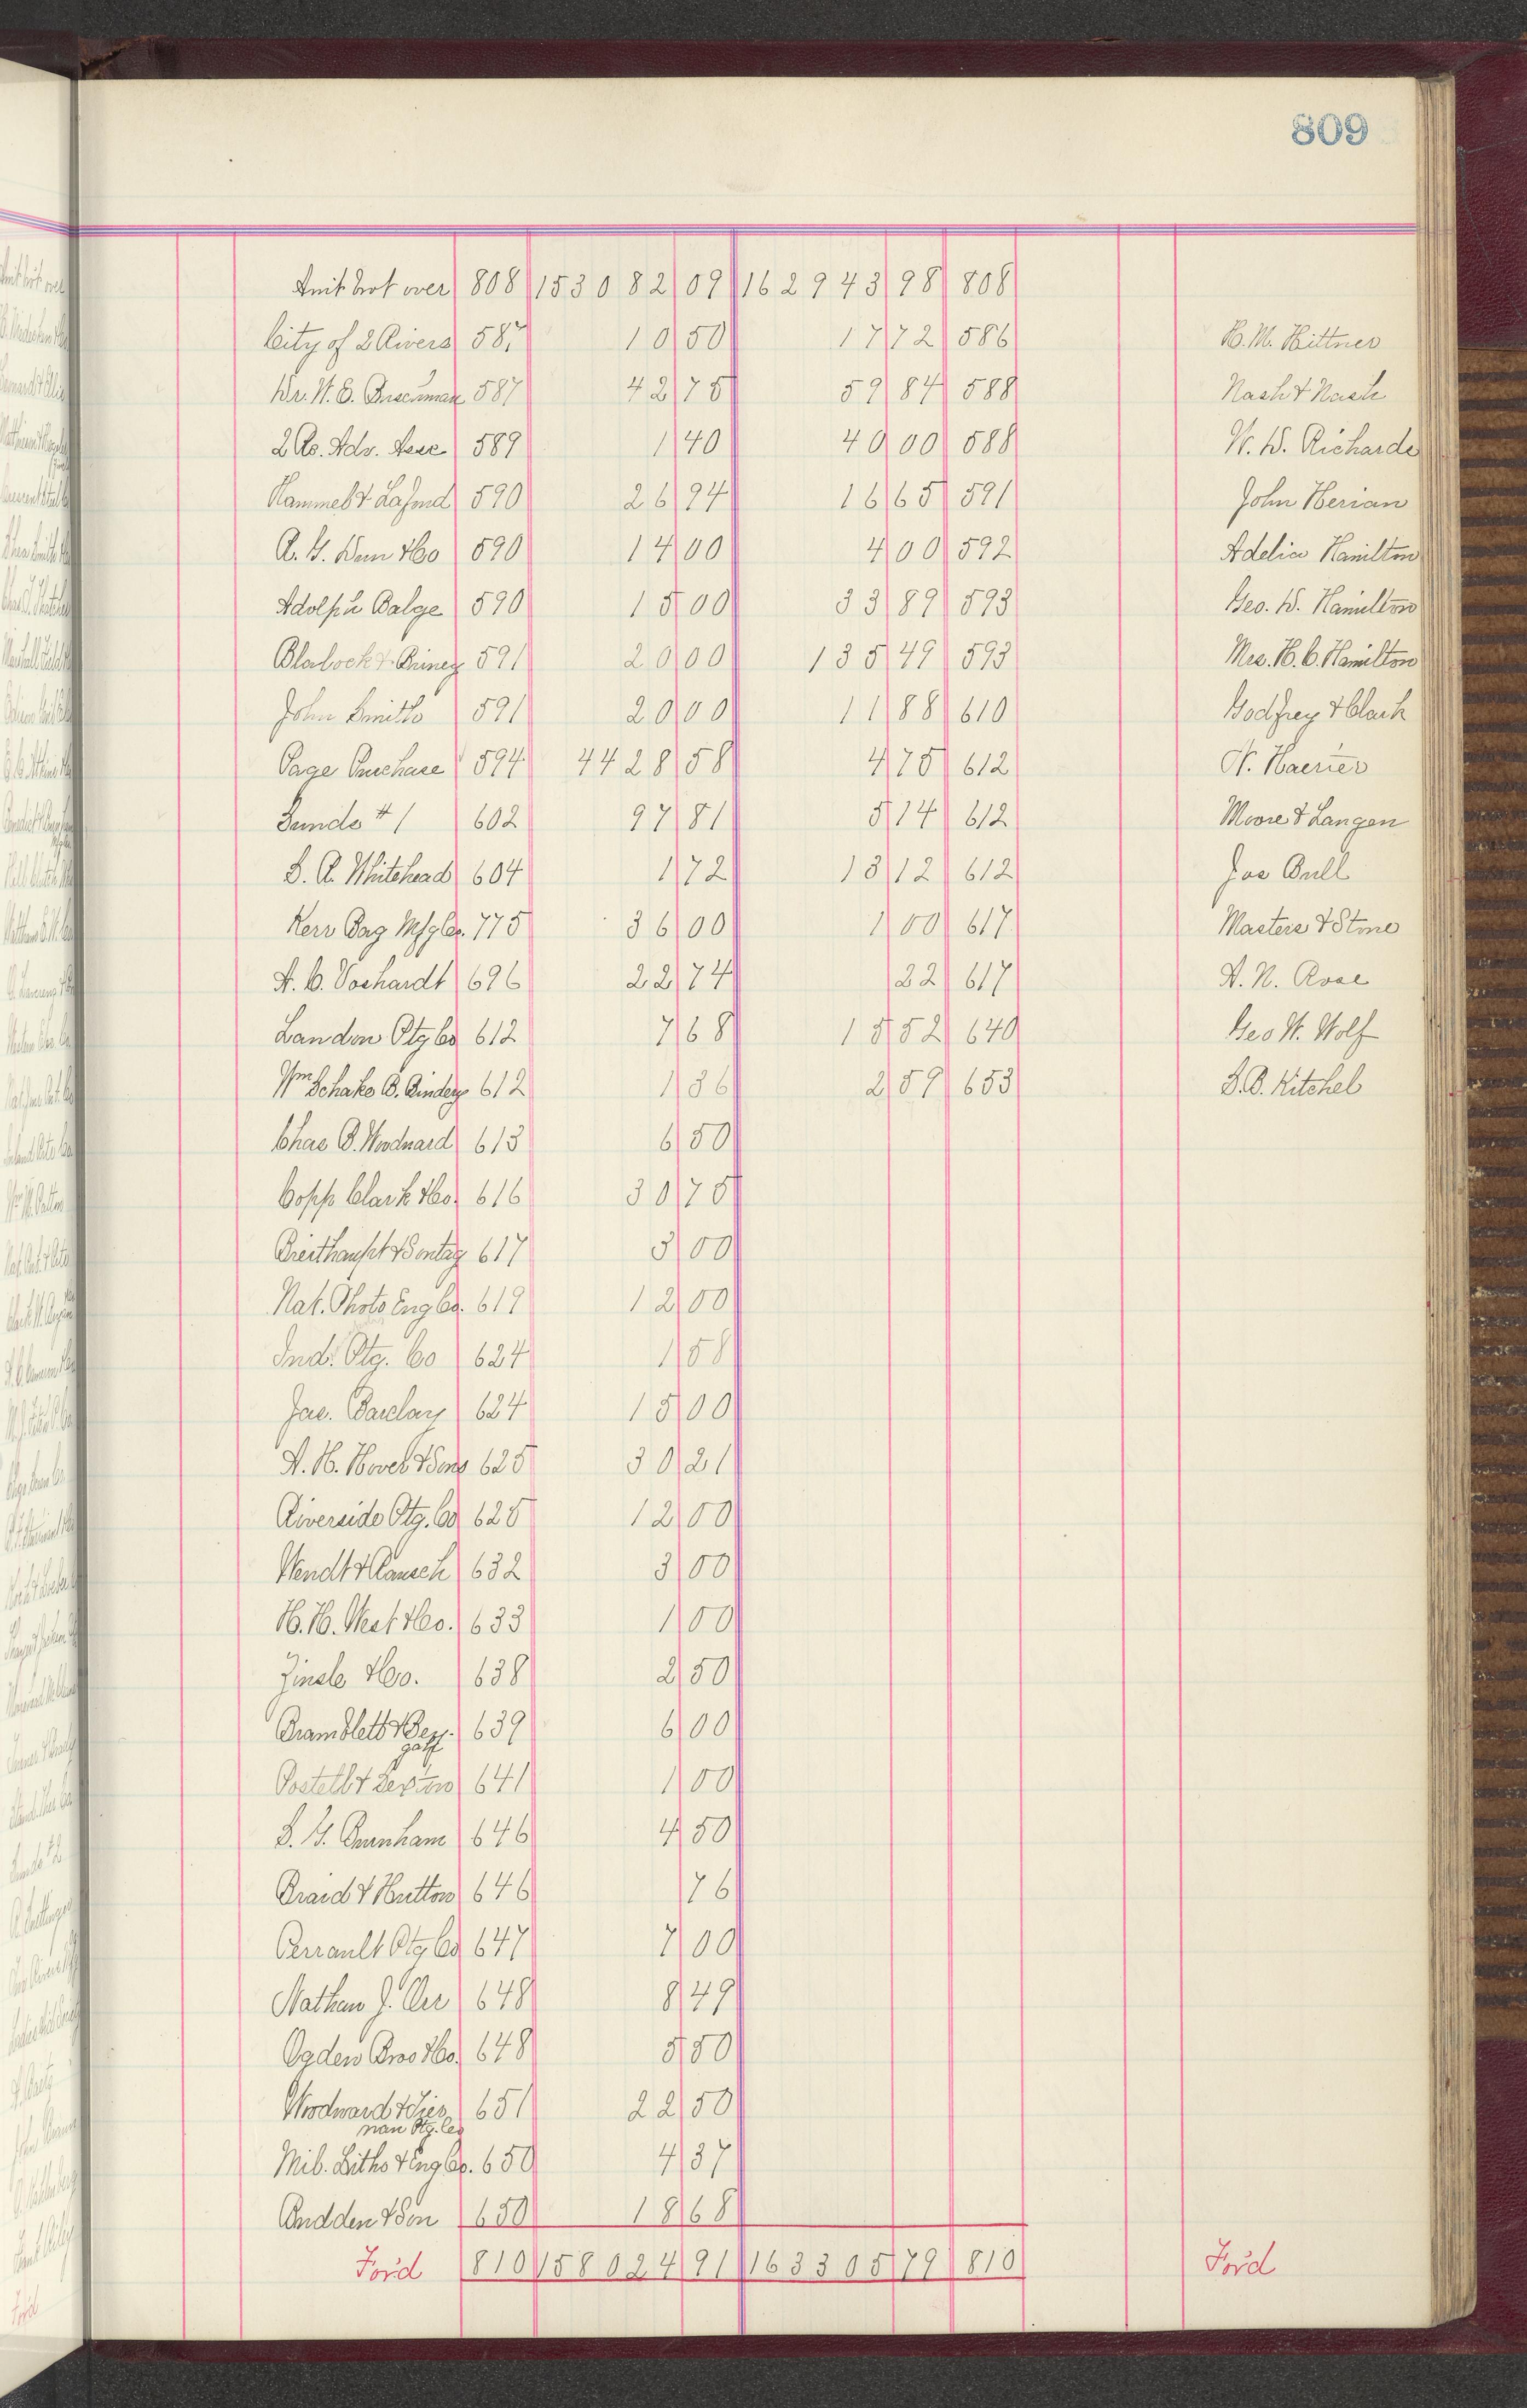 809
Amt brot over 808 153082 09 162943 98 808
City of 2 Rivers 587 10 50 17 72 586 H. M. Hittner
587 42 75 59 84 588 Nash & Nash
2 Rs. Adv. Assc. 589 1 40 40 00 588 W. D. Richards
590 26 94 16 65 591 John Herian
R. G. Dun & Co 590 14 00 4 00 592 Adelia Hamilton
Adolph Balge 590 15 00 33 89 593 Geo. D. Hamilton
Blalock & 591 20 00 135 49 593 Mrs. H. C. Hamilton
John Smith 591 20 00 11 88 610 Godfrey & Clark
Page Purchase 594 4428 58 4 75 612
Sunds #1 602 97 81 5 14 612 Moore & Langen
S. A. Whitehead 604 1 72 13 12 612 Jos Bull
Kerr Bag Mfg Co. 775 36 00 1 00 617 Masters & Stone
A. C. Voshardt 696 22 74 22 617 A. N. Rose
Landon Ptg Co 612 7 68 15 52 640 Geo W. Wolf
Wm Schake B. Bindery 612 1 36 2 59 653 S. B. Kitchel
Chas B. Woodward 613 6 50
Copp Clark & Co. 616 30 75
Breithaupt & Sontag 617 3 00
Nat. Photo Eng Co. 619 12 00
Ind. Ptg. Co 624 1 58
Jas. Barclay 624 15 00
A. H. Hovel & Sons 625 30 21
Riverside Ptg. Co 625 12 00
Wendt & Rausch 632 3 00
H. H. West & Co. 633 1 00
Zinsle & Co. 638 2 50
Bramblett & Bey- 639 6 00
gatt
Postell & Sexton 641 1 00
S. G. Burnham 646 4 50
Braid & Hutton 646 76
Perrault Ptg Co 647 7 00
Nathan J. Orr 648 8 49
Ogden Bros & Co. 648 5 50
Woodward & Tier 651 22 50
nan Ptg. Co
Mil. Litho & Eng Co. 650 4 37
Budden & Son 650 18 68
For'd 810 158024 91 163305 79 810 For'd